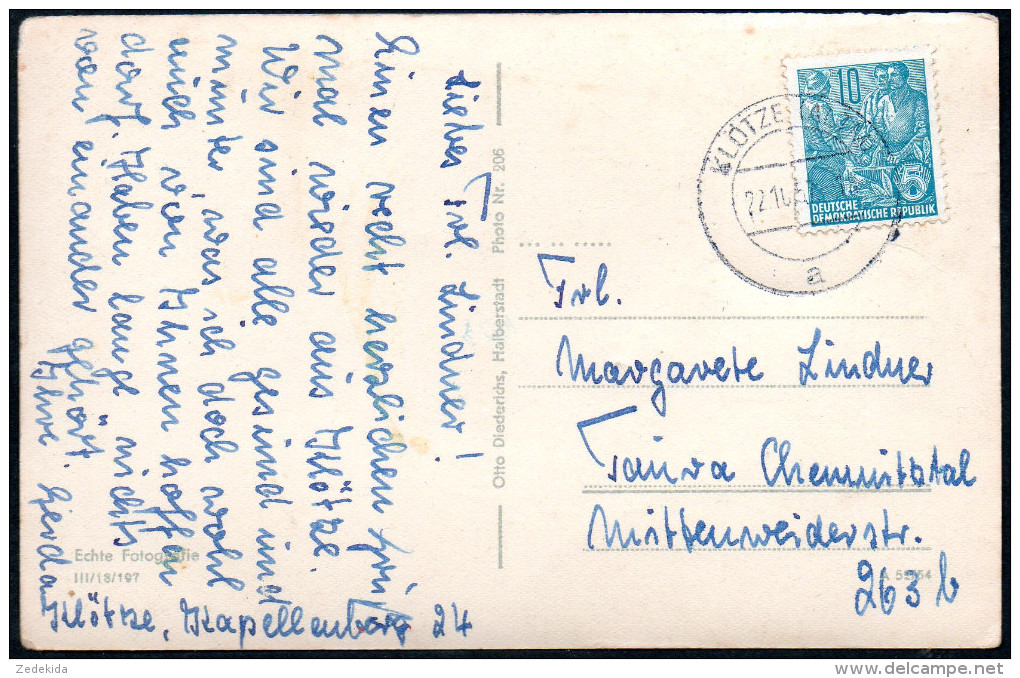 Liebes Frl. Lindner!
Einen recht herzlichen Grü
mal wieder aus Klötze.
Wir sind alle gesund und
munter, was ich doch wohl
auch von Ihnen hoffen
darf. Haben lange nichts
von einander gehört.
Ihre Gerda
Klötze, Kapellenberg 24
Echte Fotografie
III/18/197
Otto Diederichs, Halberstadt Photo Nr. 206
10
5
DEUTSCHE
DEMOKRATISCHE REPUBLIK
KLÖTZE
a
Frl.
Margarete Lindner
Taura Chemnitztal
Mittenweiderstr.
263 b
Zedekida
delcampe.net